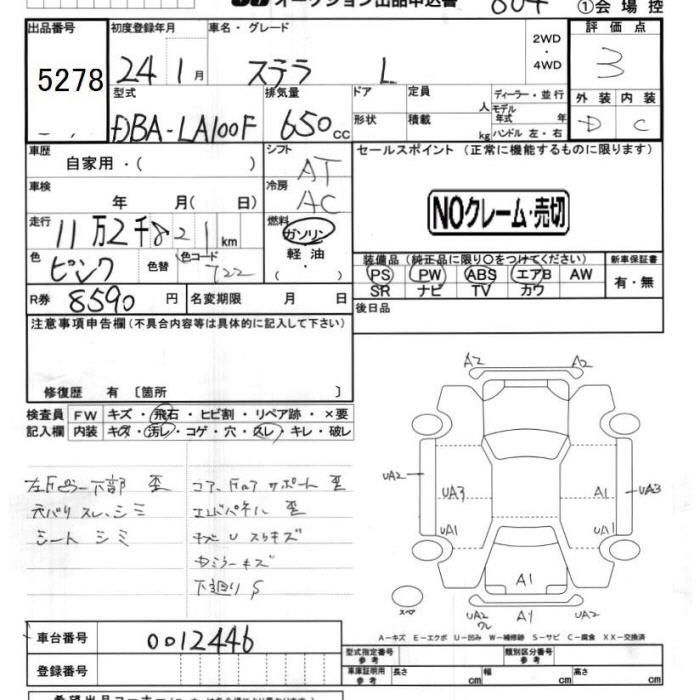 オークション出品申込書 804 ①会場控
出品番号 初度登録年月 車名・グレード 2WD 評価点
5278 24 1月 ステラ L ・4WD 3
型式 排気量 ドア 定員 人 ディーラー・並行 外装 内装
DBA-LA100F 650cc 形状 積載 kg モデル年式 年 ハンドル 左・右 D C
車歴 シフト セールスポイント (正常に機能するものに限ります)
自家用・( ) AT
車検 冷房 NOクレーム・売切
年 月( 日) AC
走行 11万2千821km 燃料 ガソリン
色 ピンク 色替 色コード T22 軽油 ・( )
装備品 (純正品に限り○をつけてください) 新車保証書
PS PW ABS エアB AW 有・無
SR ナビ TV カワ
R券 8590円 名変期限 月 日 後日品
注意事項申告欄(不具合内容等は具体的に記入して下さい)
修復歴 有 〔箇所 〕
検査員 FW キズ・飛石・ヒビ割・リペア跡・×要
記入欄 内装 キズ・汚レ・コゲ・穴・スレ・キレ・破レ
左 下部 歪 コアサポート 歪
スレ、シミ エンドパネル 歪
シート シミ キズ U スリキズ
ミラーキズ
下廻りS
A2 A2
UA2 UA3 A1 UA3
UA1 UA1
A1
スペア UA2 A1 UA2
ワレ
A-キズ E-エクボ U-凹み W-補修跡 S-サビ C-腐食 XX-交換済
車台番号 0012446 型式指定番号 参考 類別区分番号 参考
登録番号 車庫証明用 参考 長さ 幅 高さ